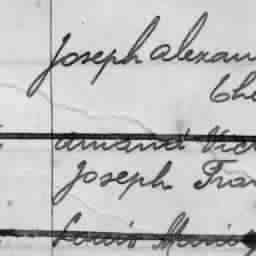 Joseph Alexan
Che
Amand Vic
Joseph Fran
Louis Marie